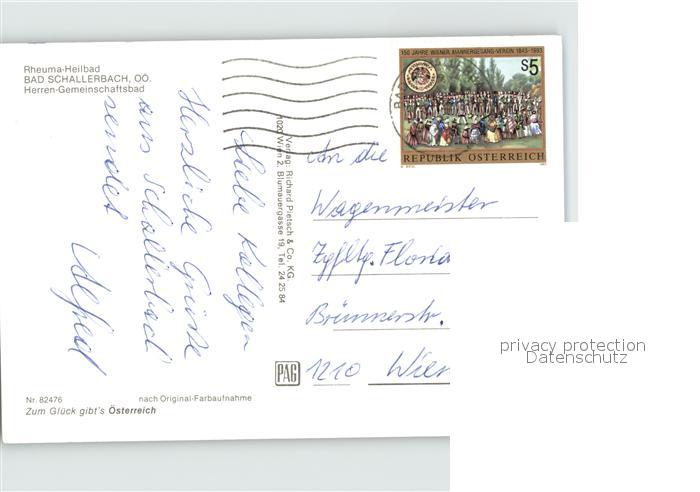 Rheuma-Heilbad
BAD SCHALLERBACH, OÖ.
Herren-Gemeinschaftsbad
Liebe Kollegen
Herzliche Grüße
aus Schallerbach
sendet
Alfred
Verlag: Richard Pietsch & Co. KG.
1020 Wien 2, Blumauergasse 19, Tel. 24 25 84
150 JAHRE WIENER MÄNNERGESANG-VEREIN 1843-1993
S5
REPUBLIK ÖSTERREICH
An die
Wagenmeister
Zgfltg. Florid
Brünnerstr.
1210 Wien
PAG
Nr. 82476 nach Original-Farbaufnahme
Zum Glück gibt's Österreich
privacy protection
Datenschutz